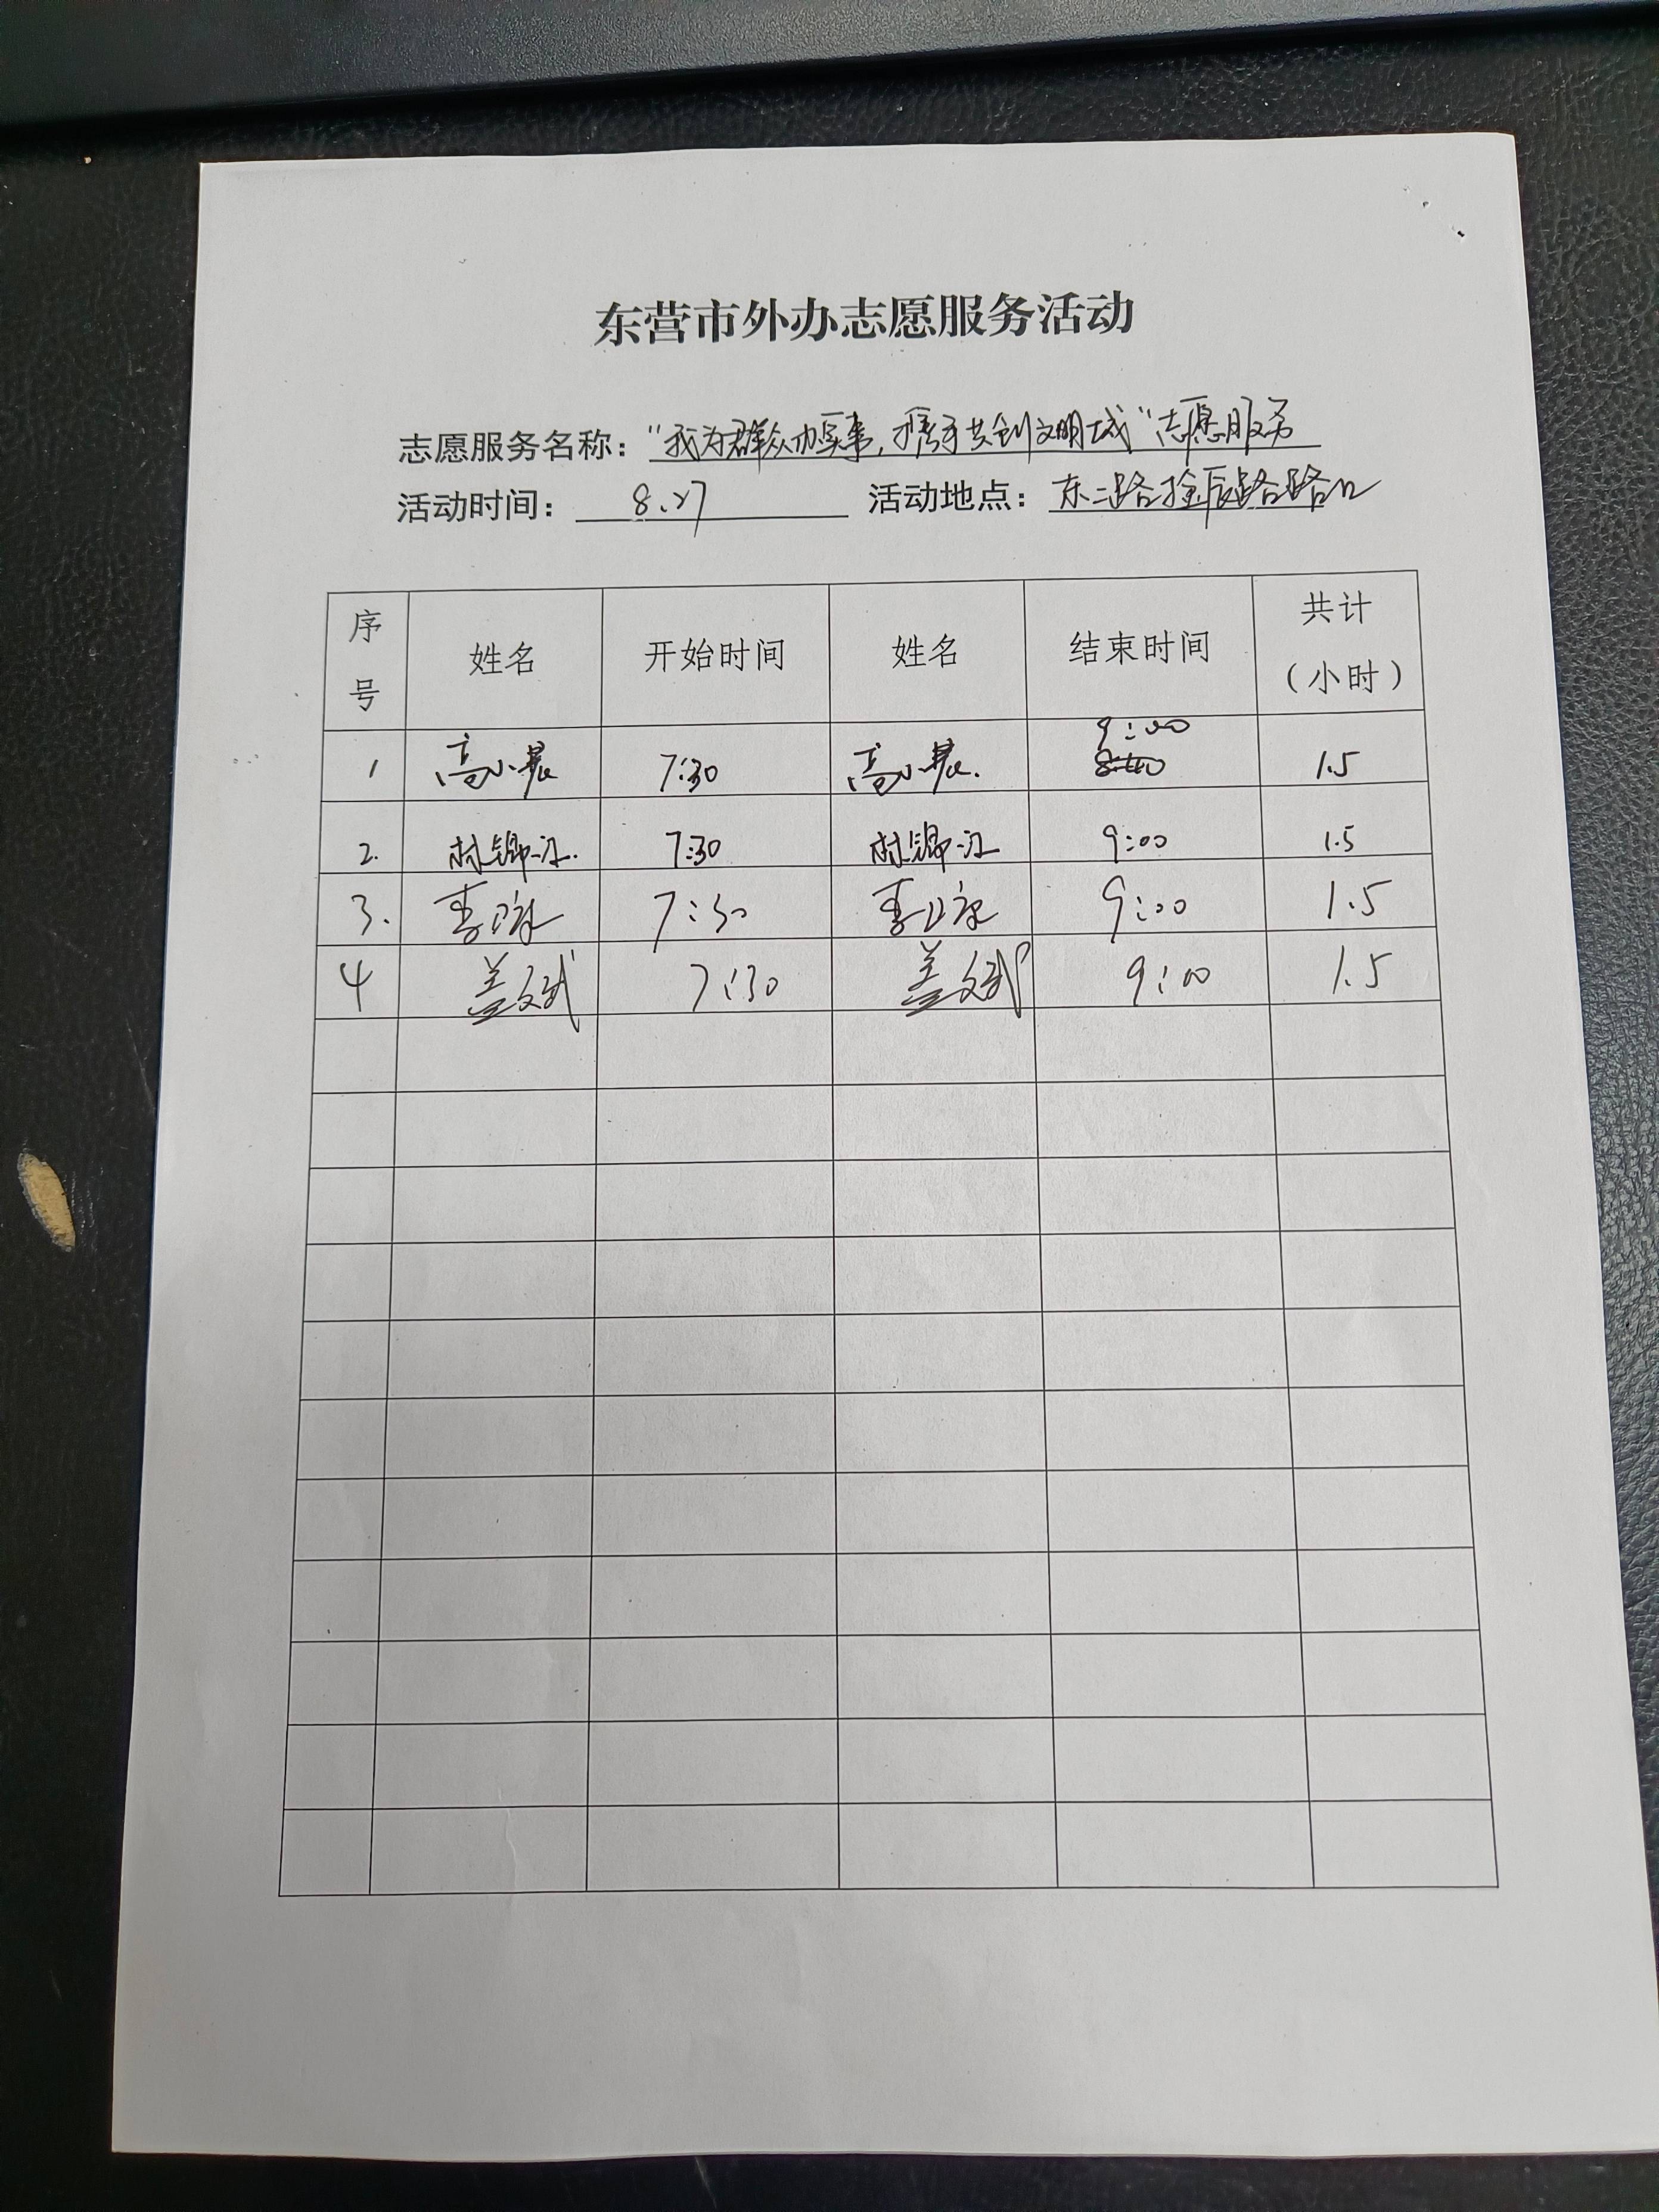 东营市外办志愿服务活动
志愿服务名称：“我为群众办实事，携手共创文明城”志愿服务
活动时间：8.27 活动地点：东二路 路路口
序号 姓名 开始时间 姓名 结束时间 共计（小时）
1 高小晨 7:30 高小晨. 9:00 1.5
2. 林锦江. 7:30 林锦江 9:00 1.5
3. 李 7:30 李 9:00 1.5
4 盖文斌 7:30 盖文斌 9:00 1.5